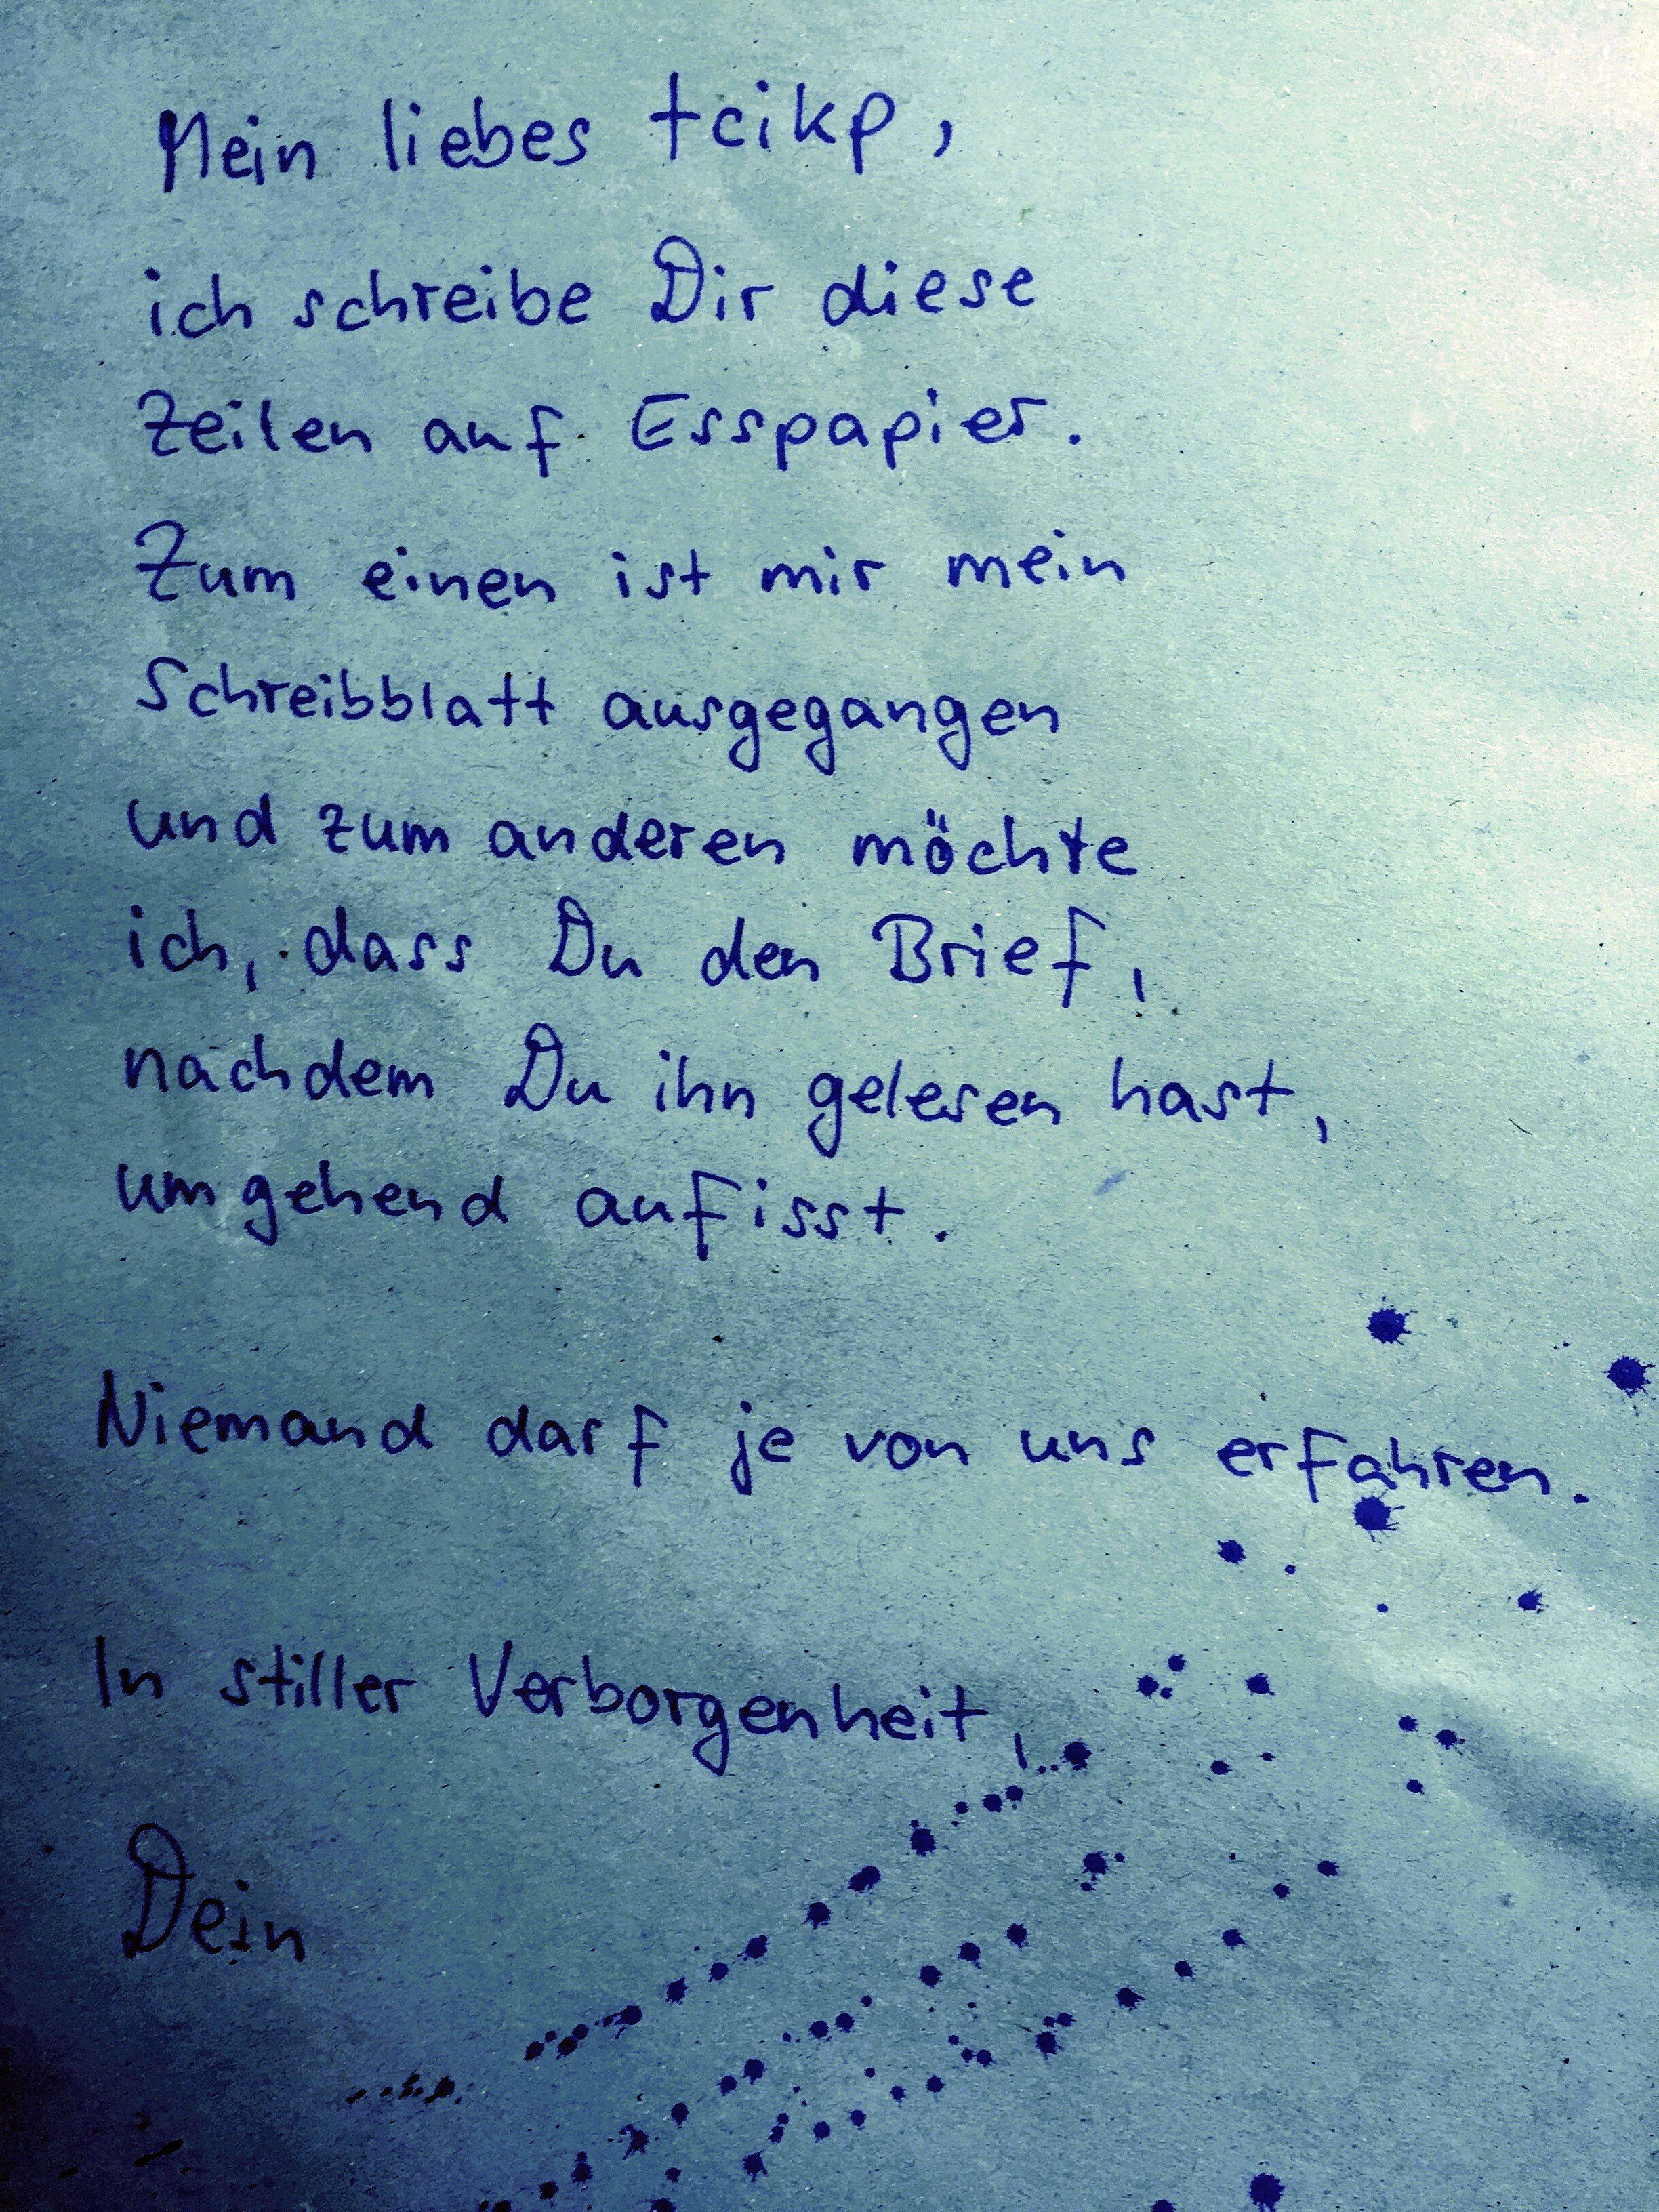 Mein liebes tcikp,
ich schreibe Dir diese
Zeilen auf Esspapier.
Zum einen ist mir mein
Schreibblatt ausgegangen
und zum anderen möchte
ich, dass Du den Brief,
nachdem Du ihn gelesen hast,
umgehend aufisst.
Niemand darf je von uns erfahren.
In stiller Verborgenheit,
Dein